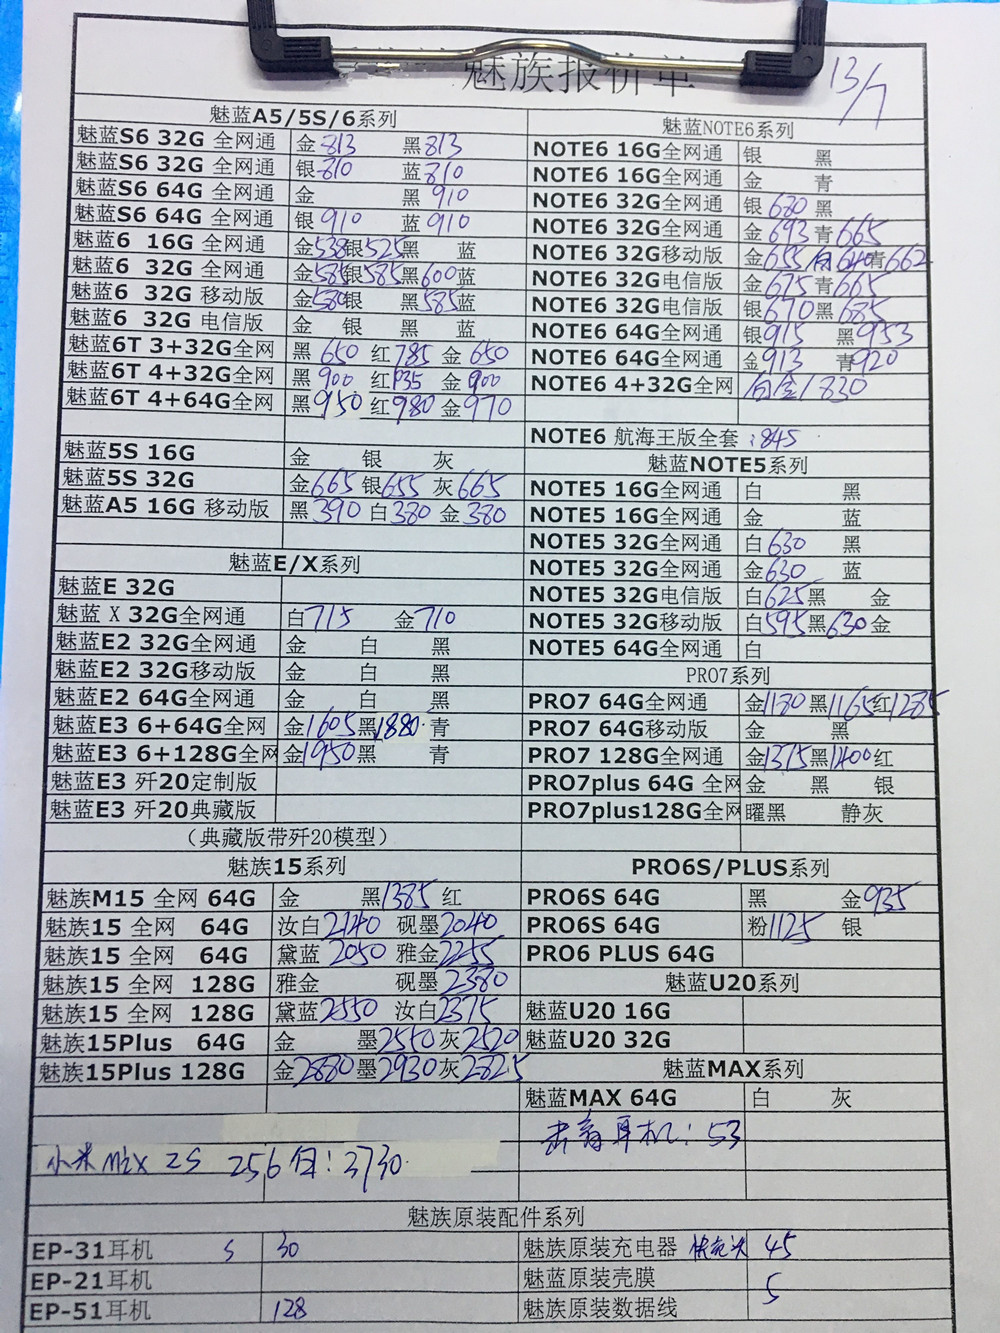 魅族报价单
13/7
魅蓝A5/5S/6系列
魅蓝S6 32G 全网通 金813 黑813
魅蓝S6 32G 全网通 银810 蓝810
魅蓝S6 64G 全网通 金 黑910
魅蓝S6 64G 全网通 银910 蓝910
魅蓝6 16G 全网通 金538银525黑 蓝
魅蓝6 32G 全网通 金585银585黑600蓝
魅蓝6 32G 移动版 金580银 黑585蓝
魅蓝6 32G 电信版 金 银 黑 蓝
魅蓝6T 3+32G全网 黑650 红785 金650
魅蓝6T 4+32G全网 黑900 红 金900
魅蓝6T 4+64G全网 黑950 红980 金970
魅蓝5S 16G 金 银 灰
魅蓝5S 32G 金665 银655 灰665
魅蓝A5 16G 移动版 黑390 白380 金380
魅蓝E/X系列
魅蓝E 32G
魅蓝 X 32G全网通 白715 金710
魅蓝E2 32G全网通 金 白 黑
魅蓝E2 32G移动版 金 白 黑
魅蓝E2 64G全网通 金 白 黑
魅蓝E3 6+64G全网 金1605黑1880 青
魅蓝E3 6+128G全网 金1950黑 青
魅蓝E3 歼20定制版
魅蓝E3 歼20典藏版
（典藏版带歼20模型）
魅族15系列
魅族M15 全网 64G 金 黑1385 红
魅族15 全网 64G 汝白2140 砚墨2040
魅族15 全网 64G 黛蓝2050 雅金2255
魅族15 全网 128G 雅金 砚墨2380
魅族15 全网 128G 黛蓝2550 汝白2375
魅族15Plus 64G 金 墨2550灰2520
魅族15Plus 128G 金2880墨2930灰2825
小米mix 2S 256白：3730
魅蓝NOTE6系列
NOTE6 16G全网通 银 黑
NOTE6 16G全网通 金 青
NOTE6 32G全网通 银680黑
NOTE6 32G全网通 金693青665
NOTE6 32G移动版 金655 白640青662
NOTE6 32G电信版 金675青665
NOTE6 32G电信版 银670黑685
NOTE6 64G全网通 银915 黑953
NOTE6 64G全网通 金913 青920
NOTE6 4+32G全网 830
NOTE6 航海王版全套：845
魅蓝NOTE5系列
NOTE5 16G全网通 白 黑
NOTE5 16G全网通 金 蓝
NOTE5 32G全网通 白630 黑
NOTE5 32G全网通 金630 蓝
NOTE5 32G电信版 白625黑 金
NOTE5 32G移动版 白595黑630金
NOTE5 64G全网通 白
PRO7系列
PRO7 64G全网通 金1180黑1165红1285
PRO7 64G移动版 金 黑
PRO7 128G全网通 金1375黑1400红
PRO7plus 64G 全网 金 黑 银
PRO7plus128G全网 曜黑 静灰
PRO6S/PLUS系列
PRO6S 64G 黑 金935
PRO6S 64G 粉1125 银
PRO6 PLUS 64G
魅蓝U20系列
魅蓝U20 16G
魅蓝U20 32G
魅蓝MAX系列
魅蓝MAX 64G 白 灰
耳机：53
魅族原装配件系列
EP-31耳机 S 30 魅族原装充电器 快充头 45
EP-21耳机 魅蓝原装壳膜 5
EP-51耳机 128 魅族原装数据线